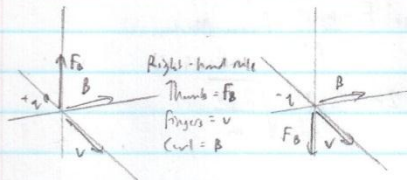 F_B
B
+q
v
Right-hand rule
Thumb = F_B
Fingers = v
Curl = B
-q
B
F_B
v